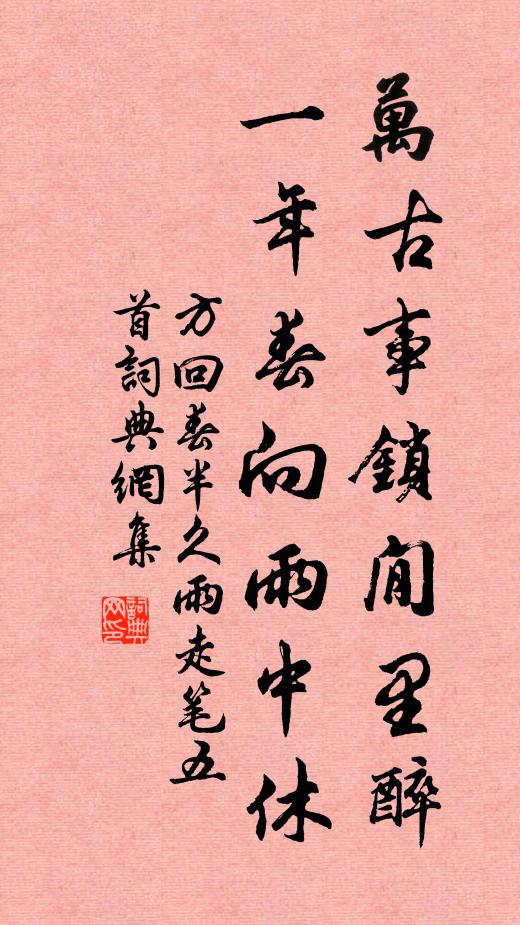 萬古事鎖閒里醉
一年春向雨中休
方回春半久雨走笔五
首詞典網集
詞典网印